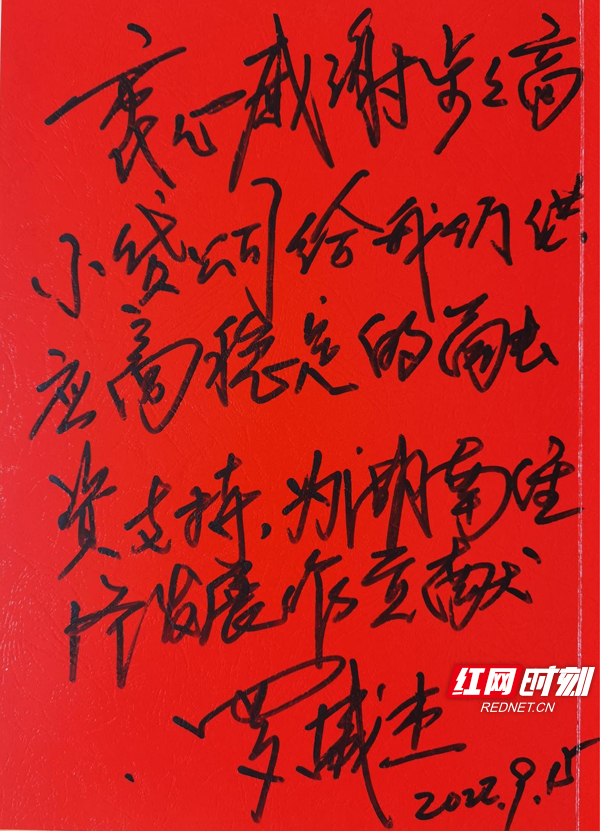 衷心感谢步々高
小贷公司给我们供
应商稳定的融
资支持,为湖南经
济发展作贡献
罗杰
2022.9.15
红网时刻
REDNET.CN